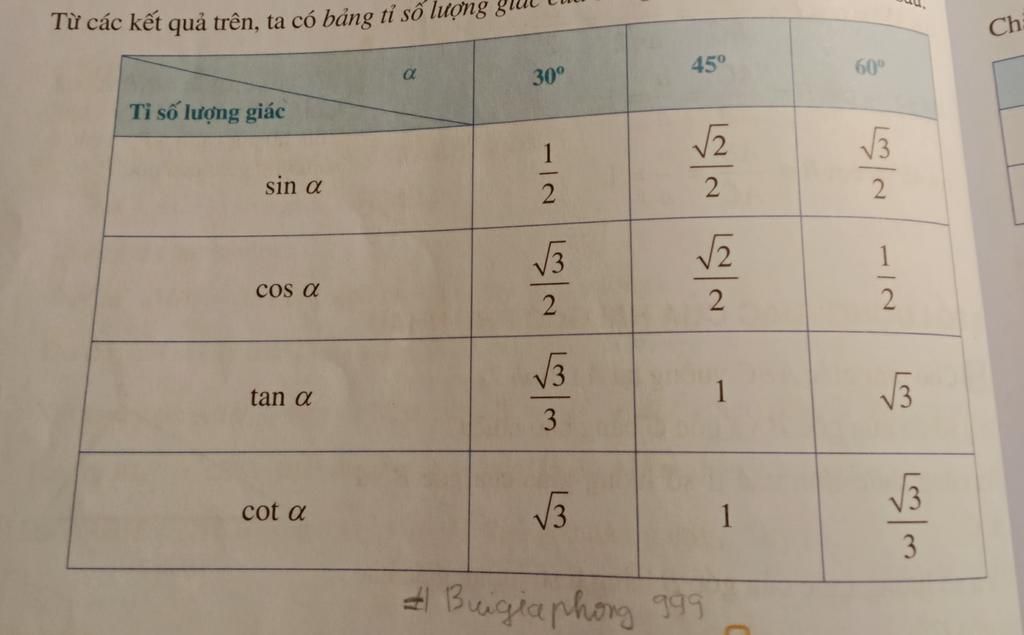 Từ các kết quả trên, ta có bảng tỉ số lượng giác
Chỉ
α 30° 45° 60°
Tỉ số lượng giác
sin α 1/2 √2/2 √3/2
cos α √3/2 √2/2 1/2
tan α √3/3 1 √3
cot α √3 1 √3/3
Buigiaphong 999